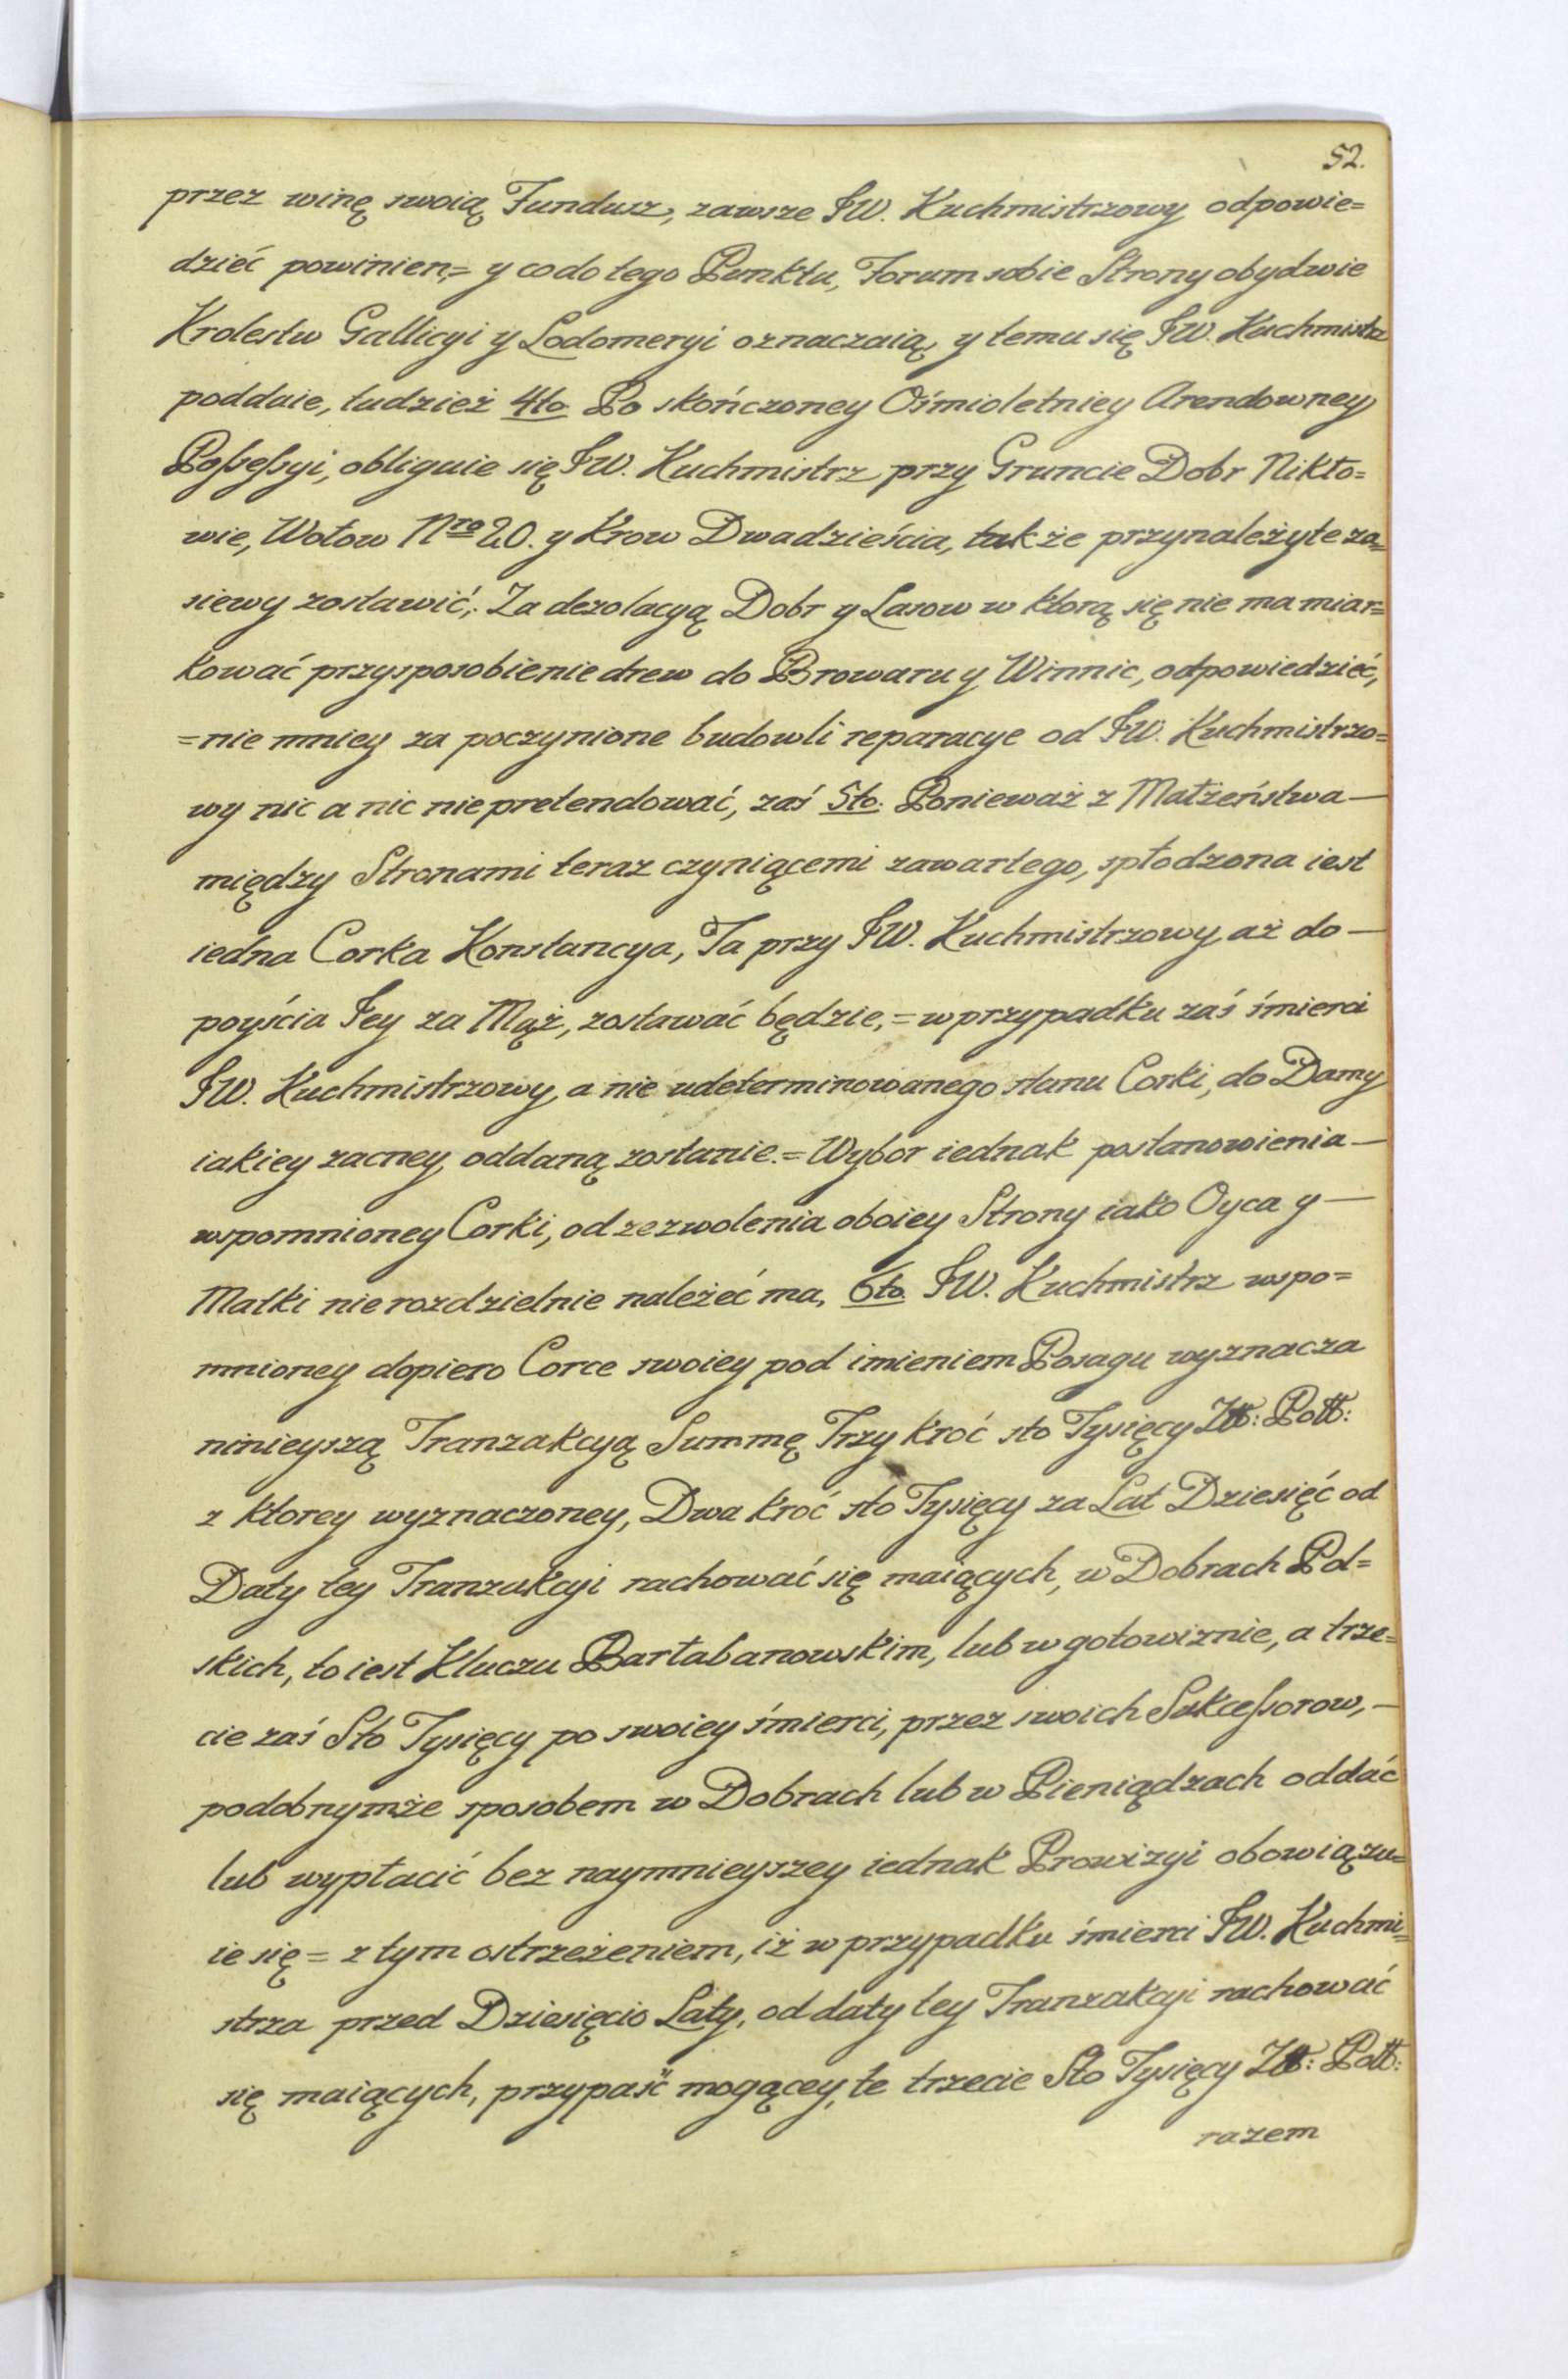 52.
przez winę swoią Fundusz, zawsze JW. Kuchmistrzowy odpowie=
dzieć powinien,= y co do tego Punktu, Forum sobie Strony obydwie
Krolestw Gallicyi y Lodomeryi oznaczaią, y temu się JW. Kuchmistrz
poddaie, tudzież 4to Po skończoney Ośmioletniey Arendowney
Poſseſsyi, obliguie się JW. Kuchmistrz przy Gruncie Dobr Nikło=
wie, Wołow Nro 20. y Krow Dwadzieścia, także przynależyte za=
siewy zostawić,. Za dezolacyą Dobr y Lasow w ktorą się nie ma miar=
kować przysposobienie drew do Browaru y Winnic, odpowiedzieć,
=nie mniey za poczynione budowli reparacye od JW. Kuchmistrzo=
wy nic a nic nie pretendować, zaś 5to. Ponieważ z Małżeństwa—
między Stronami teraz czyniącemi zawartego, spłodzona iest
iedna Corka Konstancya, Ta przy JW. Kuchmistrzowy aż do—
poyścia Jey za Mąż, zostawać będzie,= w przypadku zaś śmierci
JW. Kuchmistrzowy, a nie udeterminowanego stanu Corki, do Damy
iakiey zacney oddaną zostanie.= Wybor iednak postanowienia—
wspomnioney Corki, od zezwolenia oboiey Strony iako Oyca y—
Matki nierozdzielnie należeć ma, 6to. JW. Kuchmistrz wspo=
mnioney dopiero Corce swoiey pod imieniem Posagu wyznacza
ninieyszą Tranzakcyą Summę Trzy kroć sto Tysięcy Złł: Poll:
z ktorey wyznaczoney, Dwa kroć sto Tysięcy za Lat Dziesięć od
Daty tey Tranzakcyi rachować się maiących, w Dobrach Pol=
skich, to iest Kluczu Bartabanowskim, lub w gotowiznie, a trze=
cie zaś Sto Tysięcy po swoiey śmierci, przez swoich Sukceſsorow,—
podobnymże sposobem w Dobrach lub w Pieniądzach oddać
lub wypłacić bez naymnieyszey iednak Prowizyi obowiązu=
ie się= z tym ostrzeżeniem, iż w przypadku śmierci JW. Kuchmi=
strza przed Dziesięcio Laty, od daty tey Tranzakcyi rachować
się maiących, przypaść mogącey, te trzecie Sto Tysięcy Złł: Poll:
razem